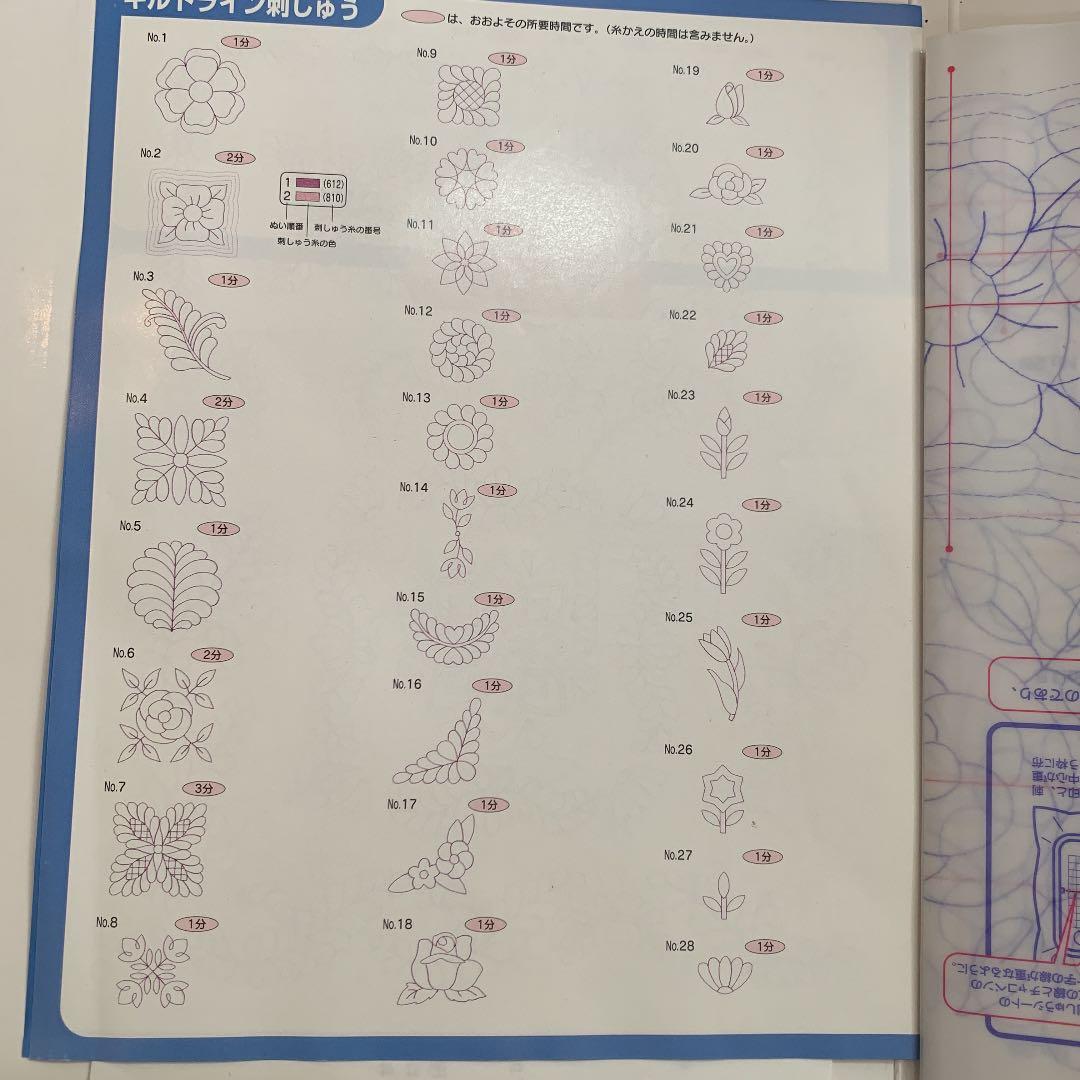 キルトライン刺しゅう
は、おおよその所要時間です。(糸かえの時間は含みません。)
No.1 1分
No.2 2分
1 (612)
2 (810)
ぬい順番 刺しゅう糸の番号
刺しゅう糸の色
No.3 1分
No.4 2分
No.5 1分
No.6 2分
No.7 3分
No.8 1分
No.9 1分
No.10 1分
No.11 1分
No.12 1分
No.13 1分
No.14 1分
No.15 1分
No.16 1分
No.17 1分
No.18 1分
No.19 1分
No.20 1分
No.21 1分
No.22 1分
No.23 1分
No.24 1分
No.25 1分
No.26 1分
No.27 1分
No.28 1分
のであり、
う枠に布
中心が重
印と、刺
しゅうシートの
の線とチャコペンの
字の線が重なるように。